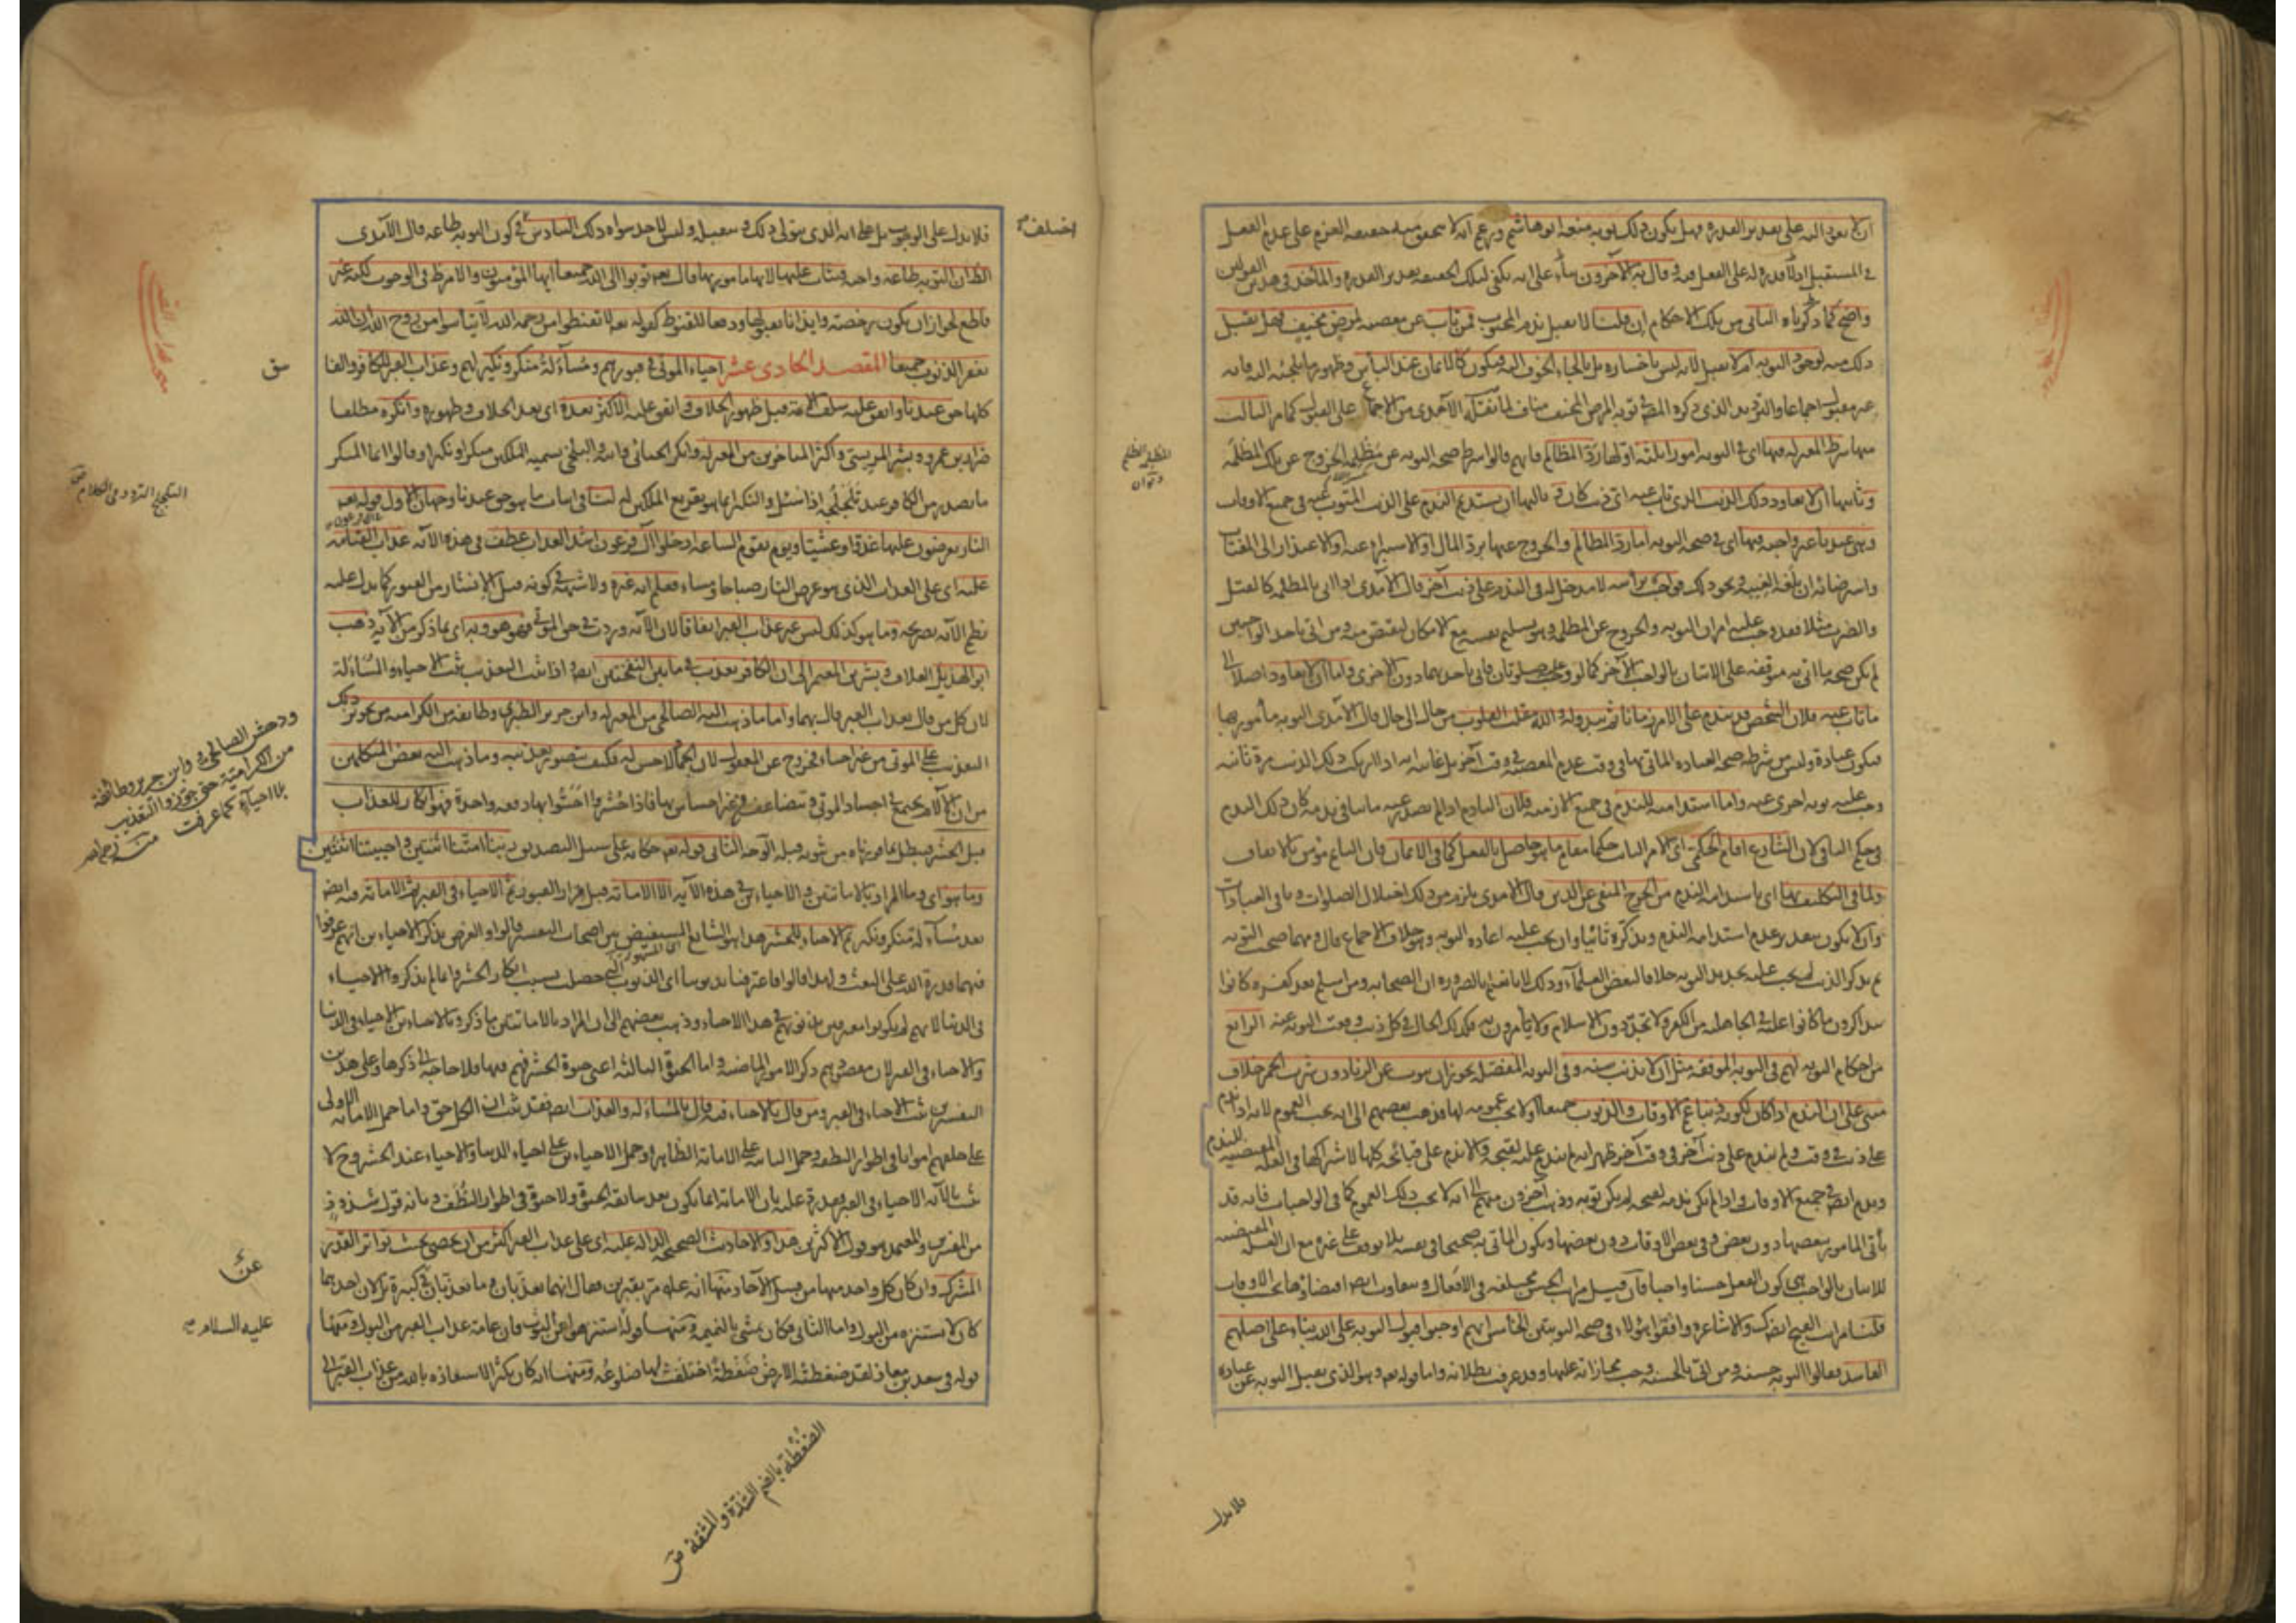 ان لا يعود اليه على تقدير القدرة فهل يكون ذلك توبة منعه ابو هاشم وزعم انه لا يتحقق منه حقيقة العزم على عدم الفعل
في المستقبل اذ لا قدرة له على الفعل فيه وقال به الآخرون بناء على انه يكفي لتلك الحقيقة تقدير القدرة والمأخذ في هذين القولين
واضح كما ذكرناه الثاني من تلك الاحكام ان قلنا لا يقبل ندم المجبوب فمن تاب عن معصية لمرض مخيف فهل يقبل
ذلك منه لوجود التوبة ام لا يقبل لانه ليس باختياره بل بالجاء الخوف اليه فيكون كالايمان عند اليأس وظهور ما يلجئه اليه فانه
غير مقبول اجماعا والترديد الذي ذكره المصنف في توبة المريض المخيف مناف لما نقله الآمدي من الاجماع على القبول كما مر الثالث
شرط المعتزلة فيها اي في التوبة امورا ثلثة اولها رد المظالم فانهم قالوا شرط صحة التوبة عن مظلمة الخروج عن تلك المظلمة
وثانيها ان لا يعاود ذلك الذنب الذي تاب عنه اي ذنب كان وثالثها ان يستديم الندم على الذنب المتوب عنه في جميع الاوقات
وهي عندنا غير واجبة فيها اي في صحة التوبة اما رد المظالم والخروج عنها برد المال او الاستبراء عنه او الاعتذار الى المغتاب
واسترضائه ان بلغه الغيبة ونحو ذلك فواجب برأسه لا مدخل له في الندم على ذنب آخر قال الآمدي اذا اتى بالمظلمة كالقتل
والضرب مثلا فقد وجب عليه امران التوبة والخروج عن المظلمة وهو تسليم نفسه مع الامكان ليقتص منه ومن اتى باحد الواجبين
لم يكن صحة ما اتى به متوقفة على الاتيان بالواجب الآخر كما لو وجب عليه صلوتان فاتى باحديهما دون الاخرى واما ان لا يعاود اصلا الى
ما تاب عنه فلان الشخص قد يندم على الامر زمانا ثم يبدو له والله مقلب القلوب من حال الى حال قال الآمدي التوبة مأمور بها
فيكون عبادة وليس من شرط صحة العبادة المأتي بها في وقت عدم المعصية في وقت آخر بل غايته انه اذا ارتكب ذلك الذنب مرة ثانية
وجب عليه توبة اخرى عنه واما استدامته للندم في جميع الازمنة فلان النادم اذا لم يصدر عنه ما ينافي ندمه كان ذلك الندم
في حكم الباقي لان الشارع اقام الحكمي اي الامر الثابت حكما مقام ما هو حاصل بالفعل كما في الايمان فان النائم مؤمن بالاتفاق
ولما في التكليف بها اي باستدامة الندم من الحرج المنفي عن الدين قال الآمدي يلزم من ذلك اختلال الصلوات وباقي العبادات
وان لا يكون بتقدير عدم استدامة الندم وتذكره تائبا وان يجب عليه اعادة التوبة وهو خلاف الاجماع قال ومهما صحت التوبة
ثم تذكر الذنب لم يجب عليه تجديد التوبة خلافا لبعض العلماء وذلك لانا نعلم بالضرورة ان الصحابة ومن اسلم بعد كفره كانوا
يتذاكرون ما كانوا عليه في الجاهلية من الكفر ولا يجددون الاسلام ولا يأمرون به فكذلك الحال في كل ذنب وقعت التوبة عنه الرابع
من احكام التوبة لهم في التوبة الموقتة مثل ان لا يذنب سنة وفي التوبة المفصلة نحو ان يتوب عن الزنا دون شرب الخمر خلاف
مبني على ان الندم اذا كان لكونه ذنبا عم الاوقات والذنوب جميعا اولا يجب عمومه لها فذهب بعضهم الى انه يجب العموم لانه اذا ندم
على ذنب في وقت ولم يندم على ذنب آخر او في وقت آخر ظهر انه لم يندم عليه لقبحه والا ندم على قبائحه كلها لاشتراكها في العلة المقتضية للندم
وندم ايضا في جميع الاوقات واذا لم يكن ندمه لقبحه لم يكن توبة وذهب آخرون منهم الى انه لا يجب ذلك العموم كما في الواجبات فانه قد
يأتي المأمور ببعضها دون بعض وفي بعض الاوقات دون بعضها ويكون المأتي به صحيحا في نفسه بلا توقف على غيره مع ان العلة المقتضية
للاتيان بالواجب هي كون الفعل حسنا واجبا فان قيل مراتب الحسن مختلفة في الافعال ويتفاوت ايضا اقتضاؤها بحسب الاوقات
قلنا مراتب القبح ايضا كذلك والاشاعرة وافقوا هؤلاء في صحة التوبتين الخامس انهم اوجبوا قبول التوبة على الله بناء على اصلهم
الفاسد فقالوا التوبة حسنة ومن اتى بالحسنة وجب مجازاته عليها وقد عرفت بطلانه واما قوله تعالى وهو الذي يقبل التوبة عن عباده
فلا يدل
فلا يدل على الوجوب بل على انه الذي يتولى ذلك ويتقبله وليس لاحد سواه ذلك السادس في كون التوبة طاعة قال الآمدي
الظ ان التوبة طاعة واجبة فيثاب عليها لانها مأمور بها قال تعالى توبوا الى الله جميعا ايها المؤمنون والامر ظ في الوجوب لكنه غير
قاطع لجواز ان يكون رخصة وايذانا بقبولها ودفعا للقنوط كقوله تعالى لا تقنطوا من رحمة الله لا تيأسوا من روح الله ان الله
يغفر الذنوب جميعا المقصد الحادي عشر احياء الموتى في قبورهم ومسآءلة منكر ونكير لهم وعذاب القبر للكافر والفا
سق
كلها حق عندنا واتفق عليه سلف الامة قبل ظهور الخلاف واتفق عليه الاكثر بعده اي بعد الخلاف وظهوره وانكره مطلقا
ضرار بن عمرو وبشر المريسي واكثر المتأخرين من المعتزلة وانكر الجبائي وابنه والبلخي تسمية الملكين منكرا ونكيرا وقالوا انما المنكر
ما يصدر من الكافر عند تلجلجه اذا سئل والنكير انما هو تقريع الملكين له لنا في اثبات ما هو حق عندنا وجهان الاول قوله تعالى
النار يعرضون عليها غدوا وعشيا ويوم تقوم الساعة ادخلوا آل فرعون اشد العذاب عطف في هذه الآية عذاب القيامة
عليه اي على العذاب الذي هو عرض النار صباحا ومساء فعلم انه غيره ولا شبهة في كونه قبل الانتشار من القبور كما يدل عليه
نظم الآية بصريحه وما هو كذلك ليس غير عذاب القبر اتفاقا لان الآية وردت في حق الموتى فهو هو وبه اي بما ذكر من الآية ذهب
ابو الهذيل العلاف وبشر بن المعتمر الى ان الكافر يعذب في ما بين النفختين ايضا واذا ثبت التعذيب ثبت الاحياء والمساءلة
لان كل من قال بعذاب القبر قال بهما واما ما ذهب اليه الصالحي من المعتزلة وابن جرير الطبري وطائفة من الكرامية من تجويز ذلك
التعذيب على الموتى من غير احياء فخروج عن المعقول لان الجماد لا حس له فكيف يتصور تعذيبه وما ذهب اليه بعض المتكلمين
من ان الآلام تجتمع في اجساد الموتى وتتضاعف من غير احساس بها فاذا حشروا احسوا بها دفعة واحدة فهو انكار للعذاب
قبل الحشر فيبطل بما قررناه من ثبوته قبله الوجه الثاني قوله تعالى حكاية على سبيل التصديق ربنا امتنا اثنتين واحييتنا اثنتين
وما هو اي وما المراد بالاماتتين والاحياءين في هذه الآية الا الاماتة قبل مزار القبور ثم الاحياء في القبر ثم الاماتة فيه ايضا
بعد مسآءلة منكر ونكير ثم الاحياء للحشر هذا هو الشائع المستفيض بين اصحاب التفسير قالوا والغرض بذكر الاحياءين انهم عرفوا
فيهما قدرة الله على البعث ولهذا قالوا فاعترفنا بذنوبنا اي الذنوب التي حصلت بسبب انكار الحشر وانما لم يذكروا الاحياء
في الدنيا لانهم لم يكونوا معترفين بذنوبهم في هذا الاحياء وذهب بعضهم الى ان المراد بالاماتتين ما ذكر وبالاحياءين الاحياء في الدنيا
والاحياء في القبر لان مقصودهم ذكر الامور الماضية واما الحيوة الثالثة اعني حيوة الحشر فهم فيها فلا حاجة الى ذكرها وعلى هذين
التفسيرين ثبت الاحياء في القبر ومن قال بالاحياء فيه قال بالمساءلة والعذاب ايضا فقد ثبت ان الكل حق واما حمل الاماتة الاولى
على خلقهم امواتا في اطوار النطفة وحمل الثانية على الاماتة الظاهرة وحمل الاحياءين على احياء الدنيا والاحياء عند الحشر وح لا
يثبت بالآية الاحياء في القبر فقد رد عليه بان الاماتة انما تكون بعد سابقة الحيوة ولا حيوة في اطوار النطف وبانه قول شذوذ
من المفسرين والمعتمد هو قول الاكثرين هذا والاحاديث الصحيحة الدالة عليه اي على عذاب القبر اكثر من ان يحصى بحيث تواتر القدر
المشترك وان كان كل واحد منها من قبيل الآحاد منها انه عليه مر بقبرين فقال انهما يعذبان وما يعذبان في كبيرة بل لان احدهما
كان لا يستنزه من البول واما الثاني فكان يمشي بالنميمة ومنها قوله استنزهوا عن البول فان عامة عذاب القبر من البول ومنها
قوله في سعد بن معاذ لقد ضغطته الارض ضغطة اختلفت لها ضلوعه ومنها انه كان يكثر الاستعاذة بالله من عذاب القبر الى
اختلف
ودهش الصالحي وابن جرير وطائفة
من الكرامية حتى جوزوا التعذيب
بلا احياء كما عرفت
عن
عليه السلام
الضغطة بالضم الشدة والمشقة